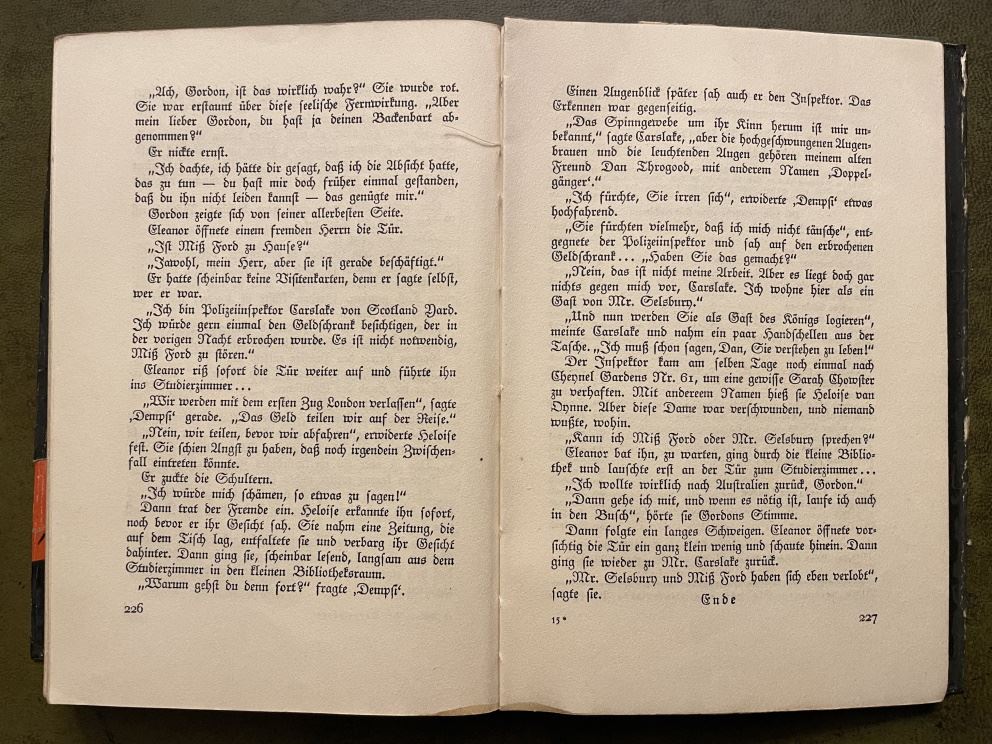 „Ach, Gordon, ist das wirklich wahr?“ Sie wurde rot.
Sie war erstaunt über diese seelische Fernwirkung. „Aber
mein lieber Gordon, du hast ja deinen Backenbart ab-
genommen?“
Er nickte ernst.
„Ich dachte, ich hätte dir gesagt, daß ich die Absicht hatte,
das zu tun — du hast mir doch früher einmal gestanden,
daß du ihn nicht leiden kannst — das genügte mir.“
Gordon zeigte sich von seiner allerbesten Seite.
Eleanor öffnete einem fremden Herrn die Tür.
„Ist Miß Ford zu Hause?“
„Jawohl, mein Herr, aber sie ist gerade beschäftigt.“
Er hatte scheinbar keine Visitenkarten, denn er sagte selbst,
wer er war.
„Ich bin Polizeiinspektor Carslake von Scotland Yard.
Ich würde gern einmal den Geldschrank besichtigen, der in
der vorigen Nacht erbrochen wurde. Es ist nicht notwendig,
Miß Ford zu stören.“
Eleanor riß sofort die Tür weiter auf und führte ihn
ins Studierzimmer...
„Wir werden mit dem ersten Zug London verlassen“, sagte
‚Dempsi‘ gerade. „Das Geld teilen wir auf der Reise.“
„Nein, wir teilen, bevor wir abfahren“, erwiderte Heloise
fest. Sie schien Angst zu haben, daß noch irgendein Zwischen-
fall eintreten könnte.
Er zuckte die Schultern.
„Ich würde mich schämen, so etwas zu sagen!“
Dann trat der Fremde ein. Heloise erkannte ihn sofort,
noch bevor er ihr Gesicht sah. Sie nahm eine Zeitung, die
auf dem Tisch lag, entfaltete sie und verbarg ihr Gesicht
dahinter. Dann ging sie, scheinbar lesend, langsam aus dem
Studierzimmer in den kleinen Bibliotheksraum.
„Warum gehst du denn fort?“ fragte ‚Dempsi‘.
226
Einen Augenblick später sah auch er den Inspektor. Das
Erkennen war gegenseitig.
„Das Spinngewebe um ihr Kinn herum ist mir un-
bekannt,“ sagte Carslake, „aber die hochgeschwungenen Augen-
brauen und die leuchtenden Augen gehören meinem alten
Freund Dan Throgood, mit anderem Namen ‚Doppel-
gänger‘.“
„Ich fürchte, Sie irren sich“, erwiderte ‚Dempsi‘ etwas
hochfahrend.
„Sie fürchten vielmehr, daß ich mich nicht täusche“, ent-
gegnete der Polizeiinspektor und sah auf den erbrochenen
Geldschrank... „Haben Sie das gemacht?“
„Nein, das ist nicht meine Arbeit. Aber es liegt doch gar
nichts gegen mich vor, Carslake. Ich wohne hier als ein
Gast von Mr. Selsbury.“
„Und nun werden Sie als Gast des Königs logieren“,
meinte Carslake und nahm ein paar Handschellen aus der
Tasche. „Ich muß schon sagen, Dan, Sie verstehen zu leben!“
Der Inspektor kam am selben Tage noch einmal nach
Cheynel Gardens Nr. 61, um eine gewisse Sarah Chowster
zu verhaften. Mit andereem Namen hieß sie Heloise van
Oynne. Aber diese Dame war verschwunden, und niemand
wußte, wohin.
„Kann ich Miß Ford oder Mr. Selsbury sprechen?“
Eleanor bat ihn, zu warten, ging durch die kleine Biblio-
thek und lauschte erst an der Tür zum Studierzimmer...
„Ich wollte wirklich nach Australien zurück, Gordon.“
„Dann gehe ich mit, und wenn es nötig ist, laufe ich auch
in den Busch“, hörte sie Gordons Stimme.
Dann folgte ein langes Schweigen. Eleanor öffnete vor-
sichtig die Tür ein ganz klein wenig und schaute hinein. Dann
ging sie wieder zu Mr. Carslake zurück.
„Mr. Selsbury und Miß Ford haben sich eben verlobt“,
sagte sie.
Ende
15*
227